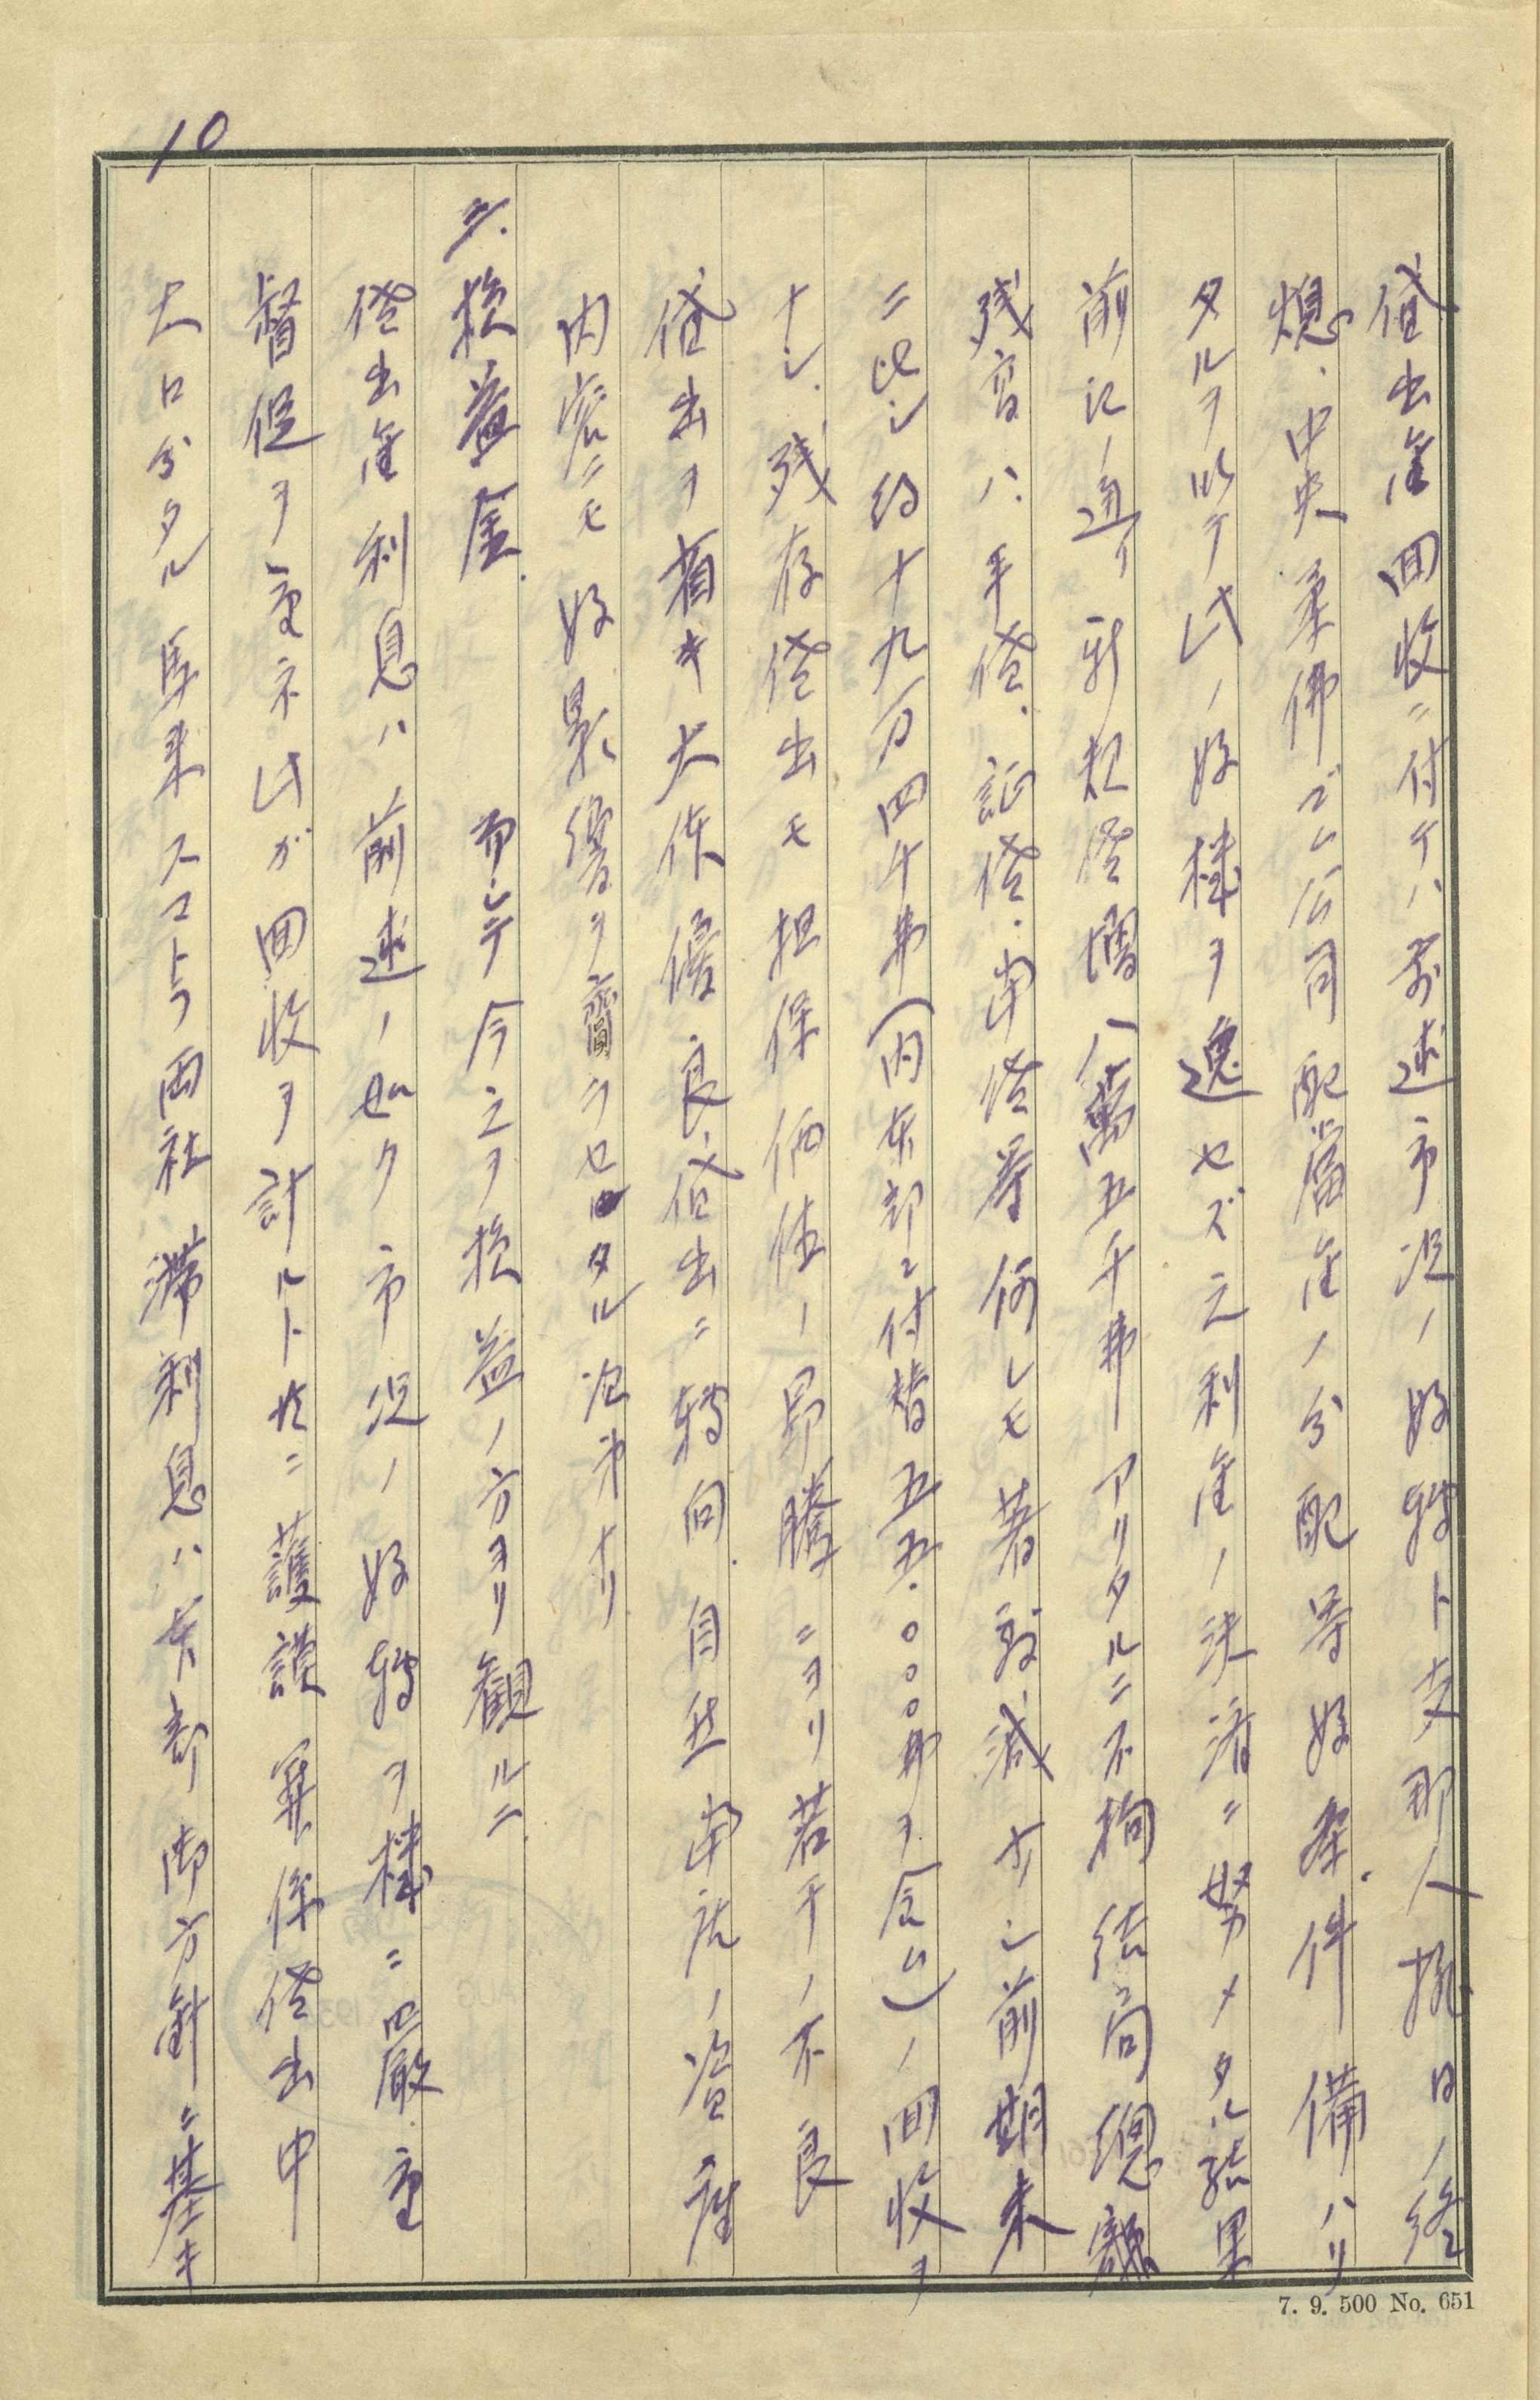 10
貸出金回收ニ付テハ前述市況ノ好轉ト支那人排日ノ終
熄、中央柔佛ゴム公司配當金ノ分配等好條件備ハリ
タルヲ以テ此ノ好機ヲ逸セズ之利金ノ決済ニ努メタル結果
前記ノ通リ新規貸増八萬五千弗アリタルニ不拘結局總額
残高ハ手貸、証貸、当貸等何レモ著敷減少シ前期末
ニ比シ約十九万四千弗(内本部ニ付替五五.〇〇〇弗ヲ含ム)ノ回收ヲ
ナシ、残存貸出モ担保価値ノ昂騰ニヨリ若干ノ不良
貸出ヲ省キ大体優良貸出ニ轉向、自然当店ノ資産
内容ニモ好影響ヲ齎ラセタル次第ナリ
三、損益金、 而シテ今之ヲ損益ノ方ヨリ観ルニ
貸出金利息ハ前述ノ如ク市況ノ好轉ヲ機ニ嚴重
督促ヲ重ネ此ガ回收ヲ計ルト共ニ護謨関係貸出中
大口分タル馬来スマトラ両社滞利息ハ本部御方針ニ基キ
7. 9. 500 No. 651